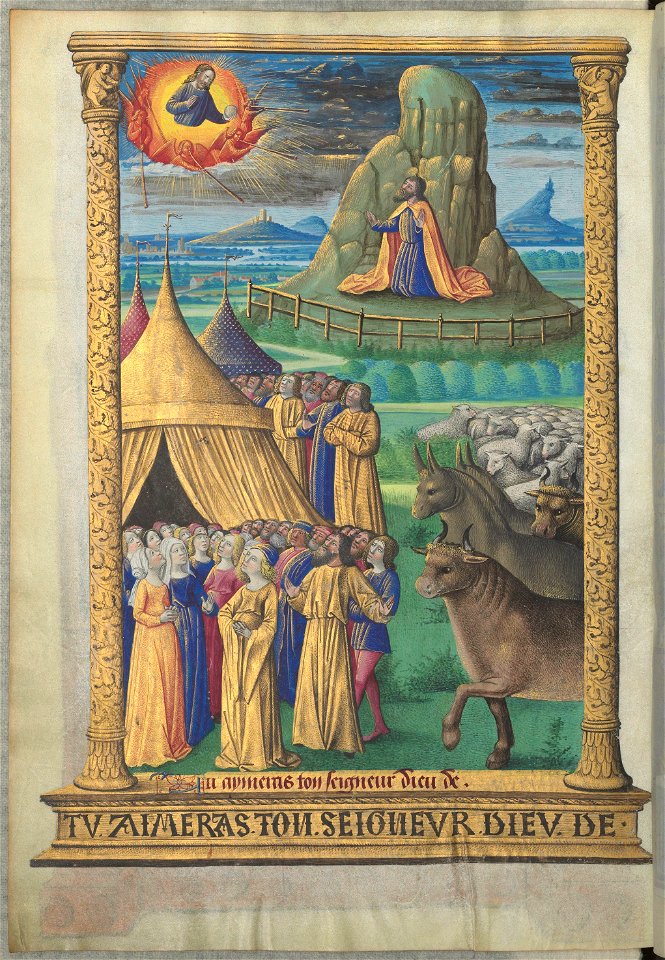 Tu aymeras ton seigneur dieu de.
TV. AIMERAS. TON. SEIGNEVR. DIEV. DE.